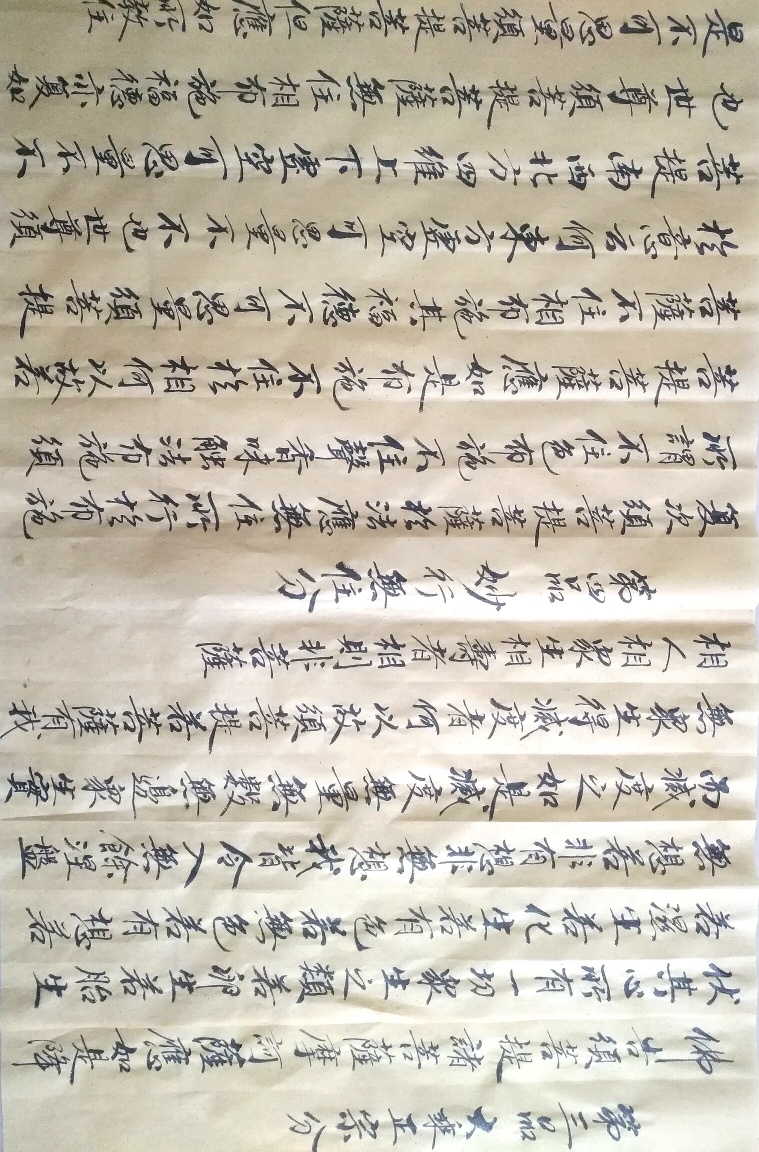 第三品 大乘正宗分
佛告須菩提諸菩薩摩訶薩應如是降
伏其心所有一切眾生之類若卵生若胎生
若濕生若化生若有色若無色若有想若
無想若非有想非無想我皆令入無餘涅盤
而滅度之如是滅度無量無數無邊眾生實
無眾生得滅度者何以故須菩提若菩薩有我
相人相眾生相壽者相則非菩薩
第四品 妙行無住分
复次須菩提菩薩於法應無住所行於布施
所謂不住色布施不住聲香味触法布施須
菩提菩薩應如是布施不住於相何以故若
菩薩不住相布施其福德不可思量須菩提
於意云何東方虛空可思量不不也世尊須
菩提南西北方四維上下虛空可思量不不
也世尊須菩提菩薩無住相布施福德亦复如
是不可思量須菩提菩薩但應如所教住